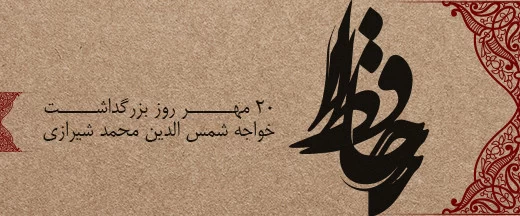 حافظ
۲۰ مهـــر روز بزرگداشـــت
خواجه شمس الدین محمد شیرازی